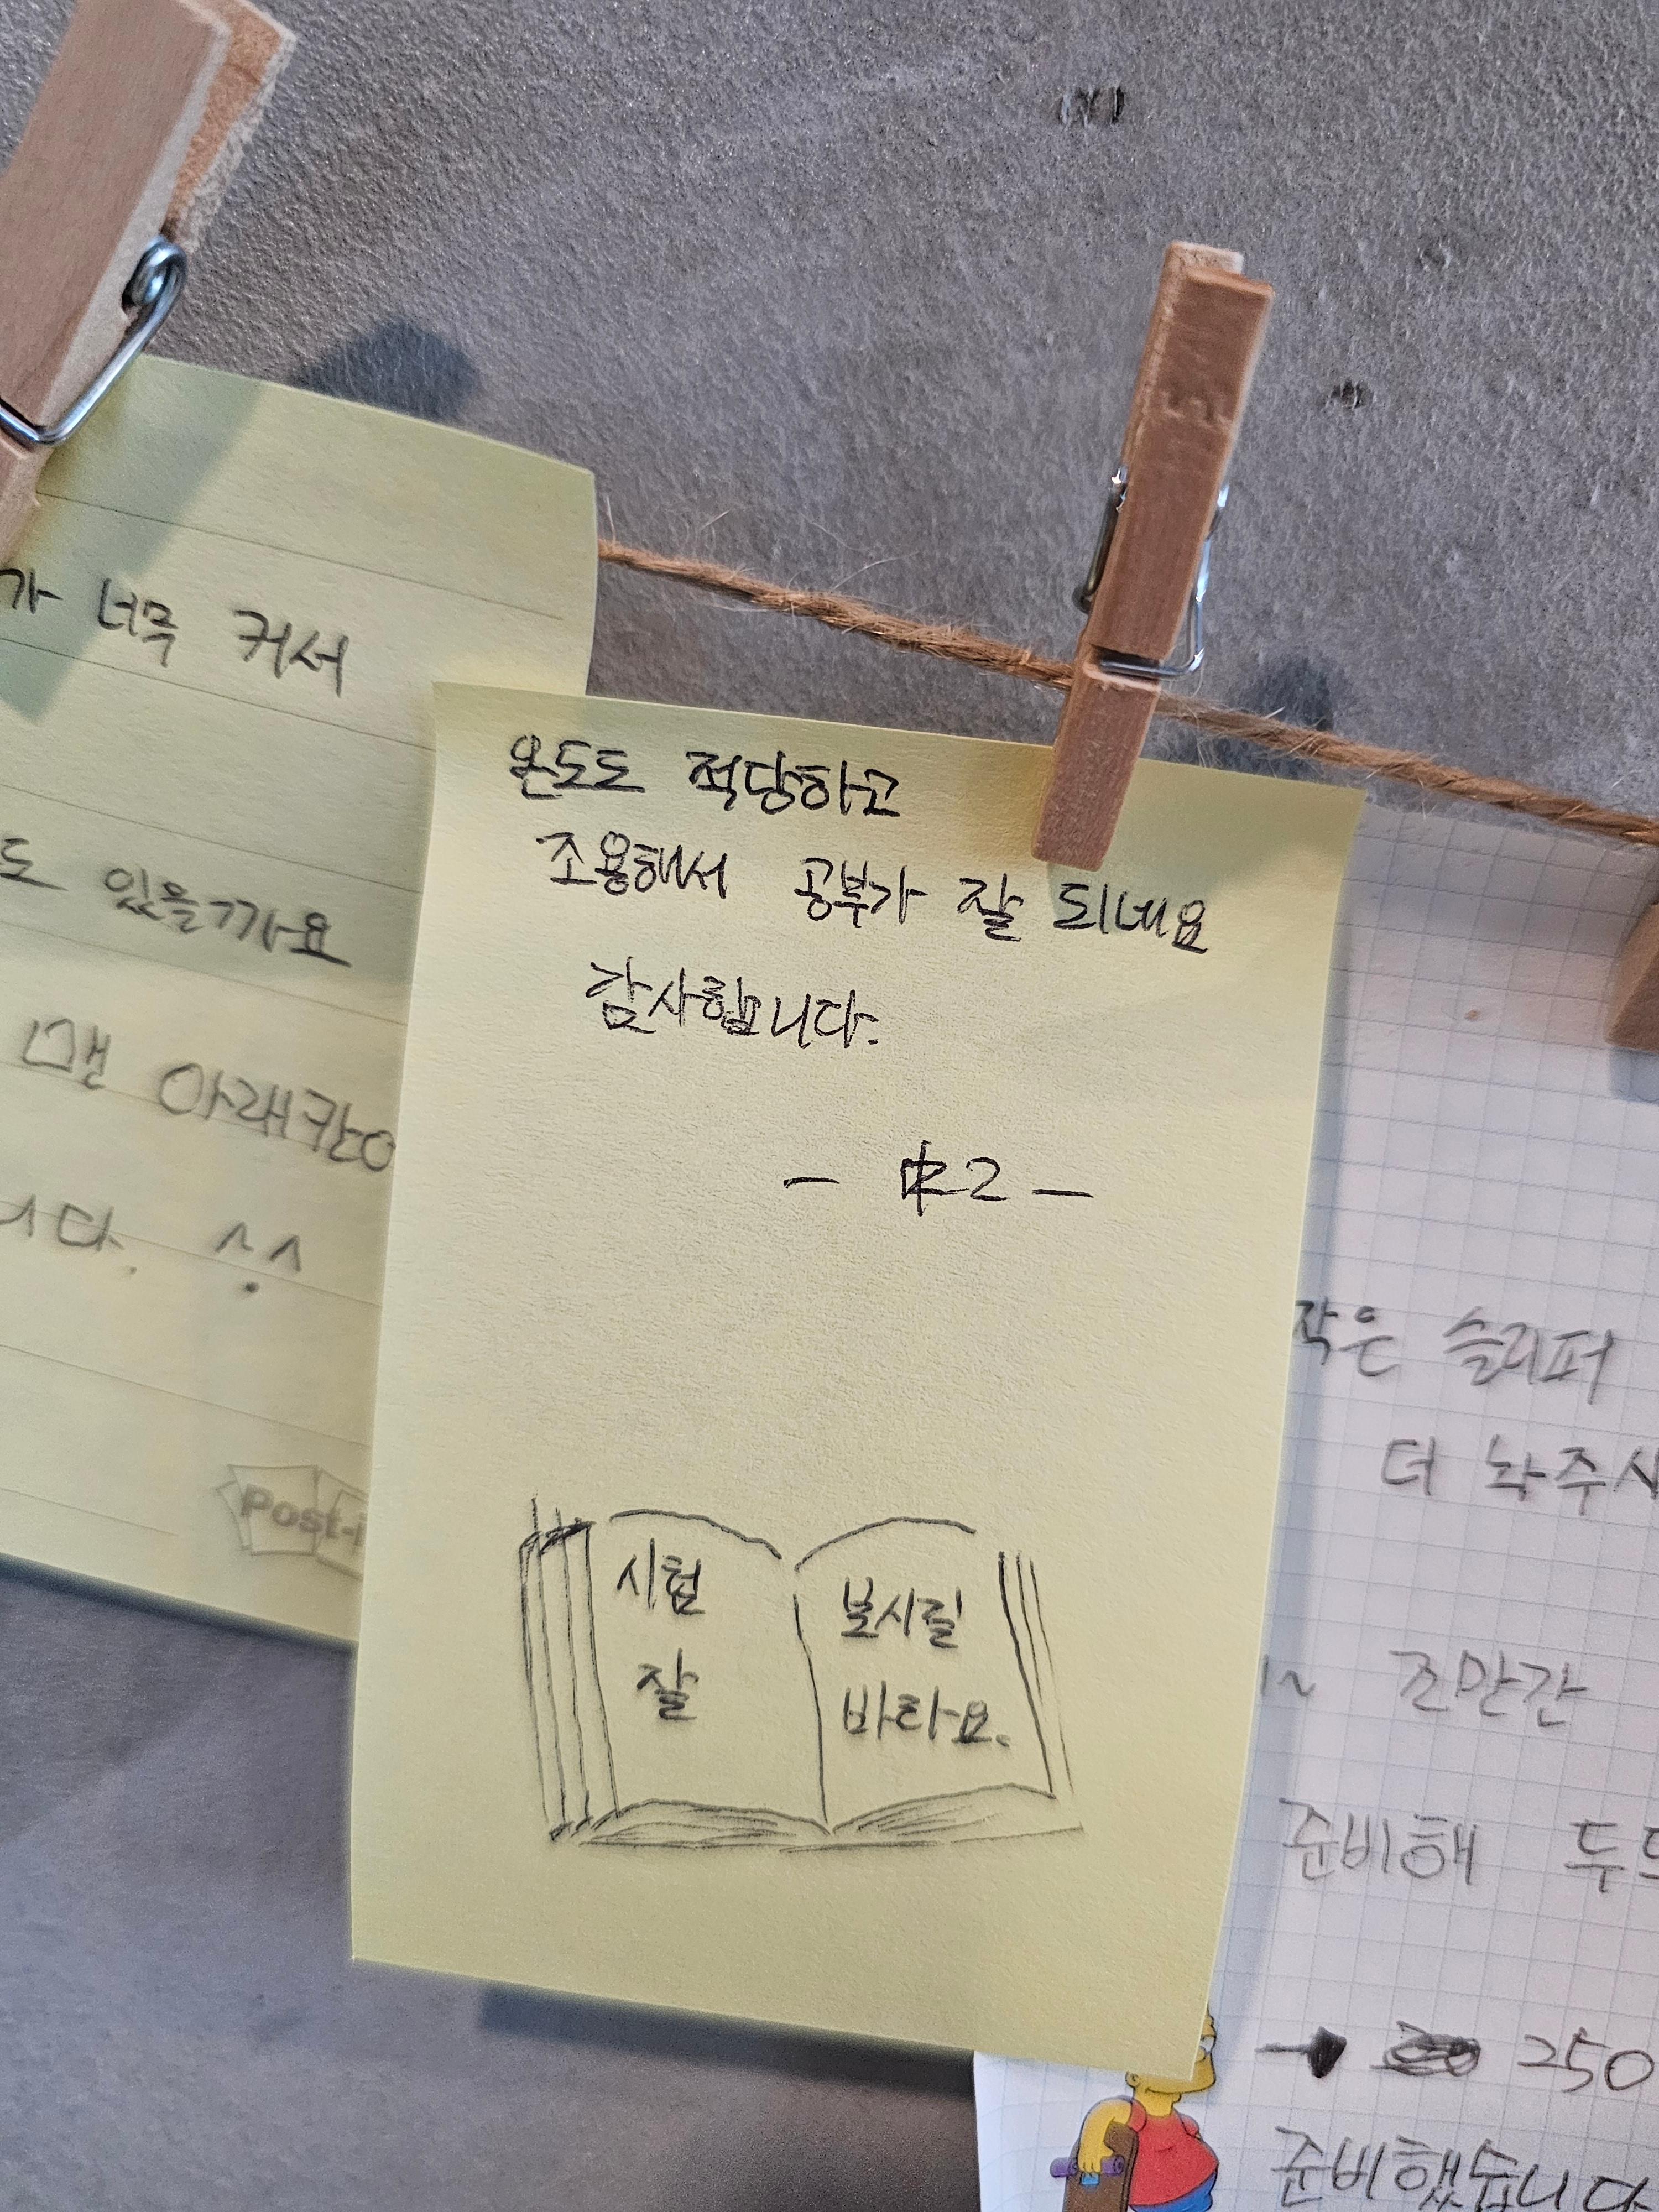 가 너무 커서
도 있을까요
맨 아래칸
니다. ^^
Post-i
온도도 적당하고
조용해서 공부가 잘 되네요
감사합니다.
시험
잘
보시릴
바라요.
작은 슬리퍼
더 놔주시
~ 조만간
준비해 두
→ 250
준비했습니다